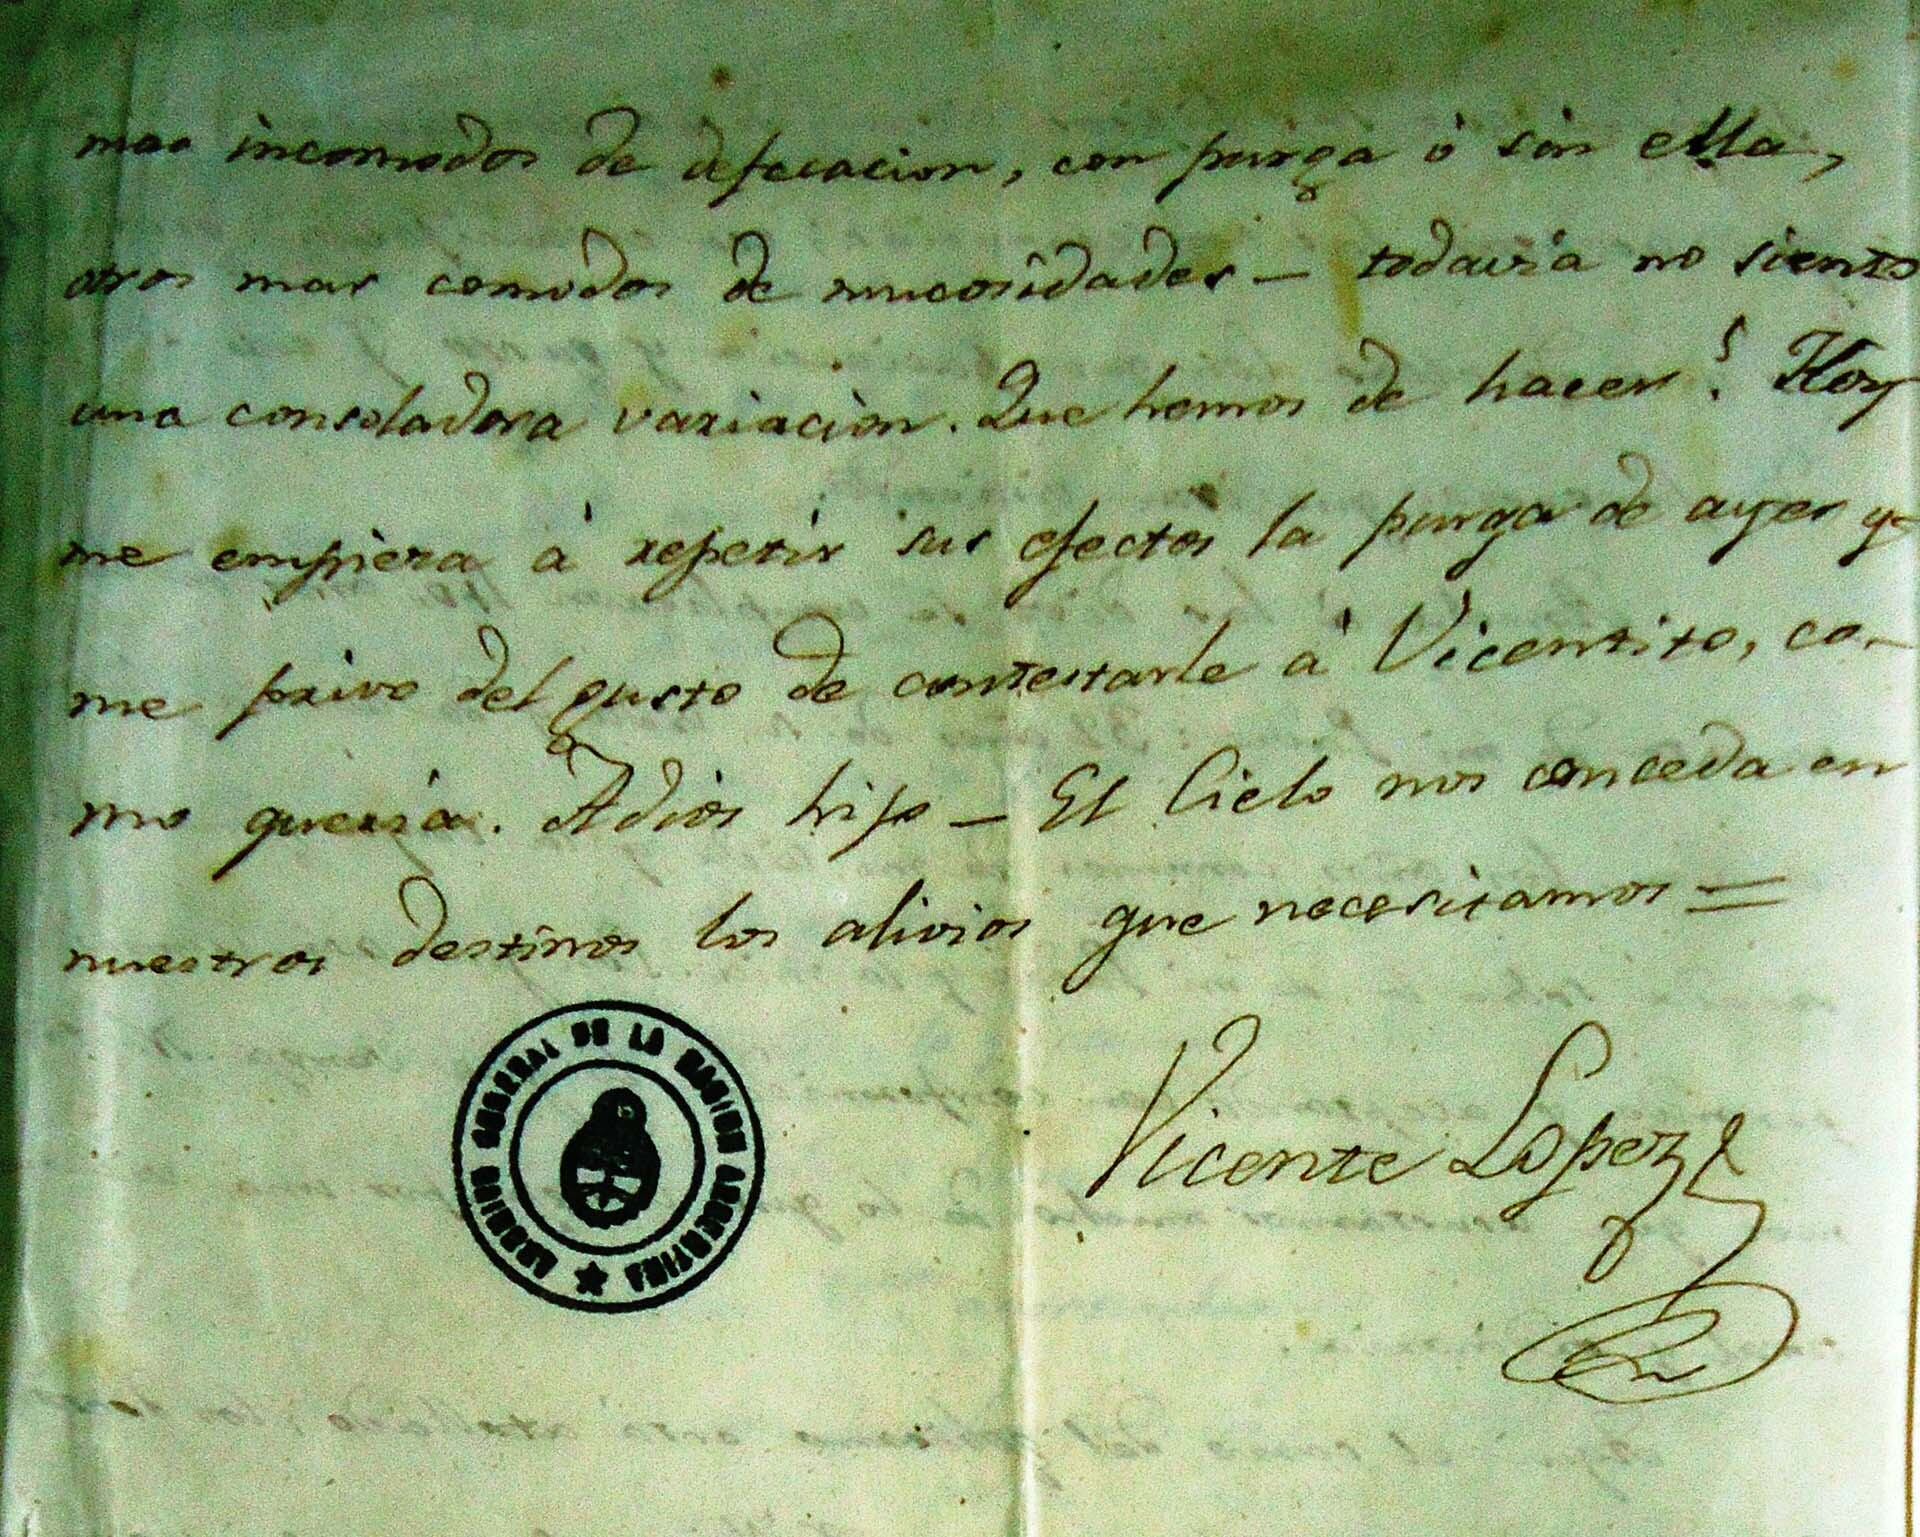 mas incomodos de defecacion, con purga ó sin ella,
otros mas comodos de mucosidades — todavia no siento
una consoladora variacion. Que hemos de hacer? Hoy
me empieza á repetir sus efectos la purga de ayer y
me privo del gusto de contestarle á Vicentito, co-
mo quería. Adios hijo — El Cielo nos conceda en
nuestros destinos los alivios que necesitamos =
Vicente Lopez
ARCHIVO GENERAL DE LA NACION ARGENTINA